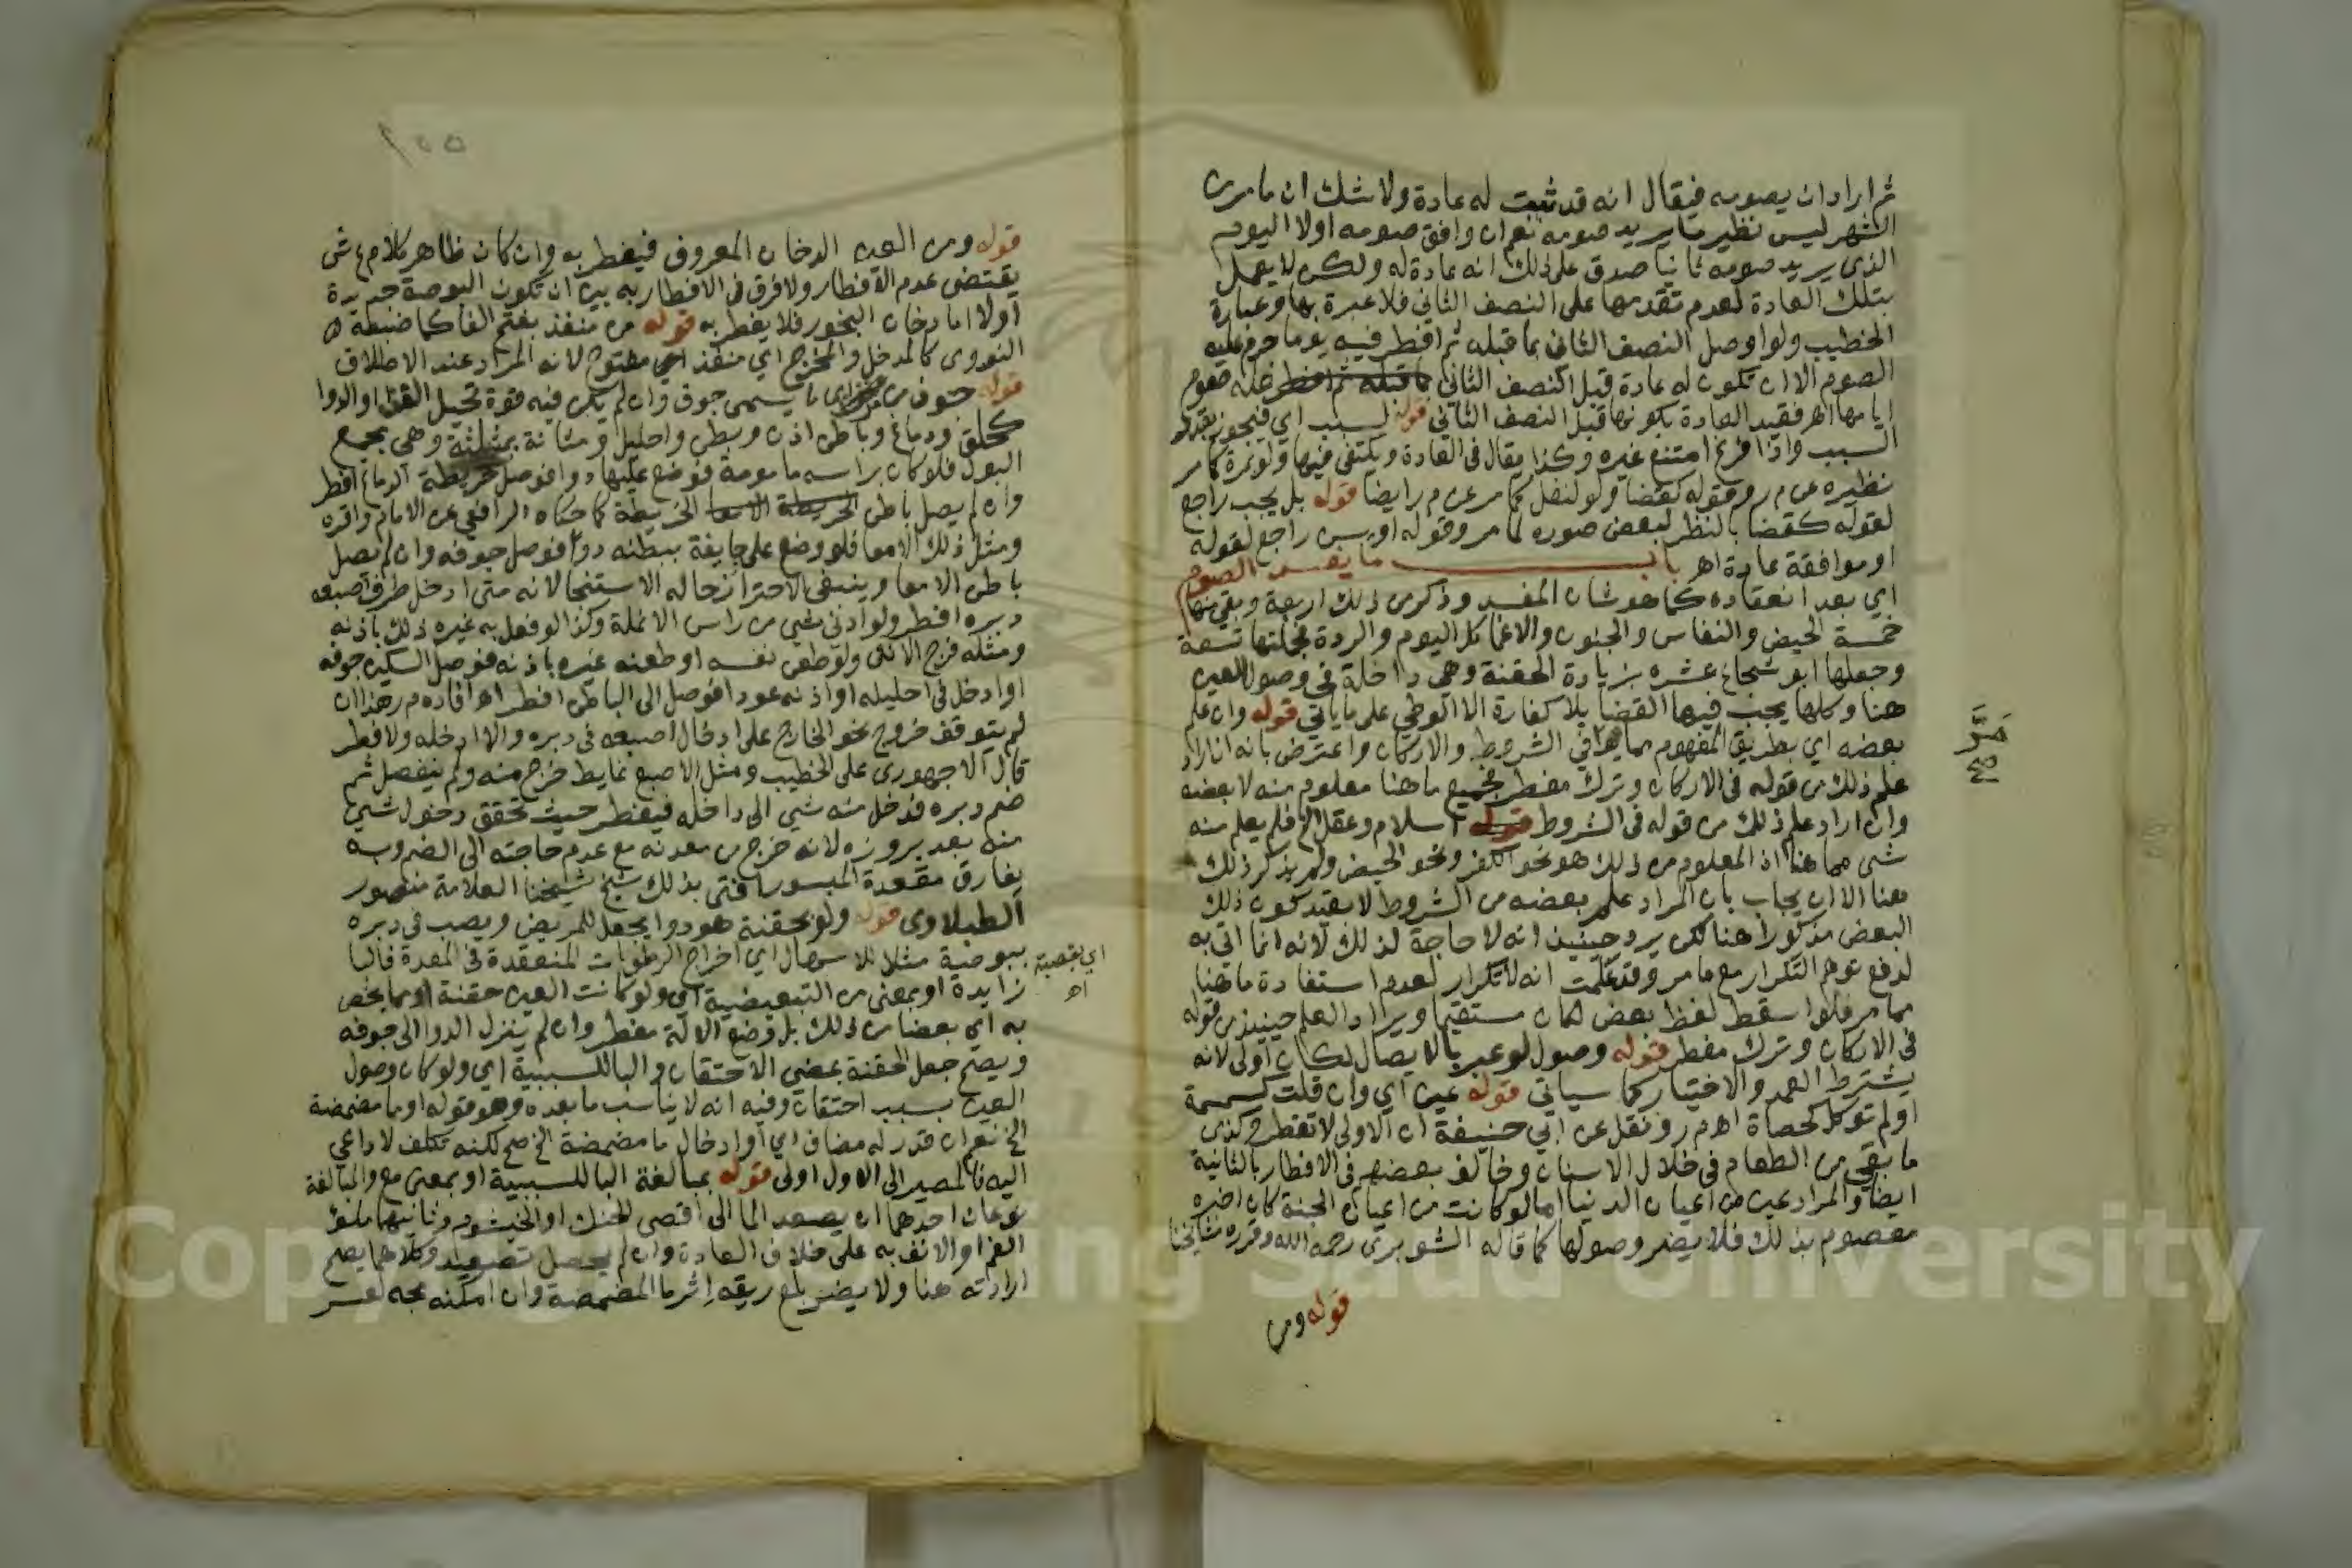 ثم اراد ان يصومه فيقال انه قد ثبت له عادة ولا شك ان ما مر من
الشهر ليس نظير ما يريد صومه نعم ان وافق صومه اولا اليوم
الذي يريد صومه ثانيا صدق على ذلك انه عادة له ولكن لا يعمل
بتلك العادة لعدم تقدمها على النصف الثاني فلا عبرة بها وعبارة
الخطيب ولو وصل النصف الثاني بما قبله ثم افطر فيه يوما حرم عليه
الصوم الا ان تكون له عادة قبل النصف الثاني فله صوم
ايامها اهر فقيد العادة بكونها قبل النصف الثاني قوله لسبب اي فيجوز بقدر
السبب واذا فرغ امتنع غيره وكذا يقال في العادة ويكتفى فيها ولو بمرة كما مر
نظيره عن م ر وقوله كقضا ولو لنفل كما مر عن م ر ايضا قوله بل يجب راجع
لقوله كقضا بالنظر لبعض صوره لما مر وقوله او يسن راجع لقوله
او موافقة عادة اهر باب ما يفسد الصوم
اي بعد انعقاده كما هو شان المفسد وذكر من ذلك اربعة وبقي منها
خمسة الحيض والنفاس والجنون والاغما كل اليوم والردة فجملتها تسعة
وجعلها ابو شجاع عشره بزيادة الحقنة وهي داخلة في وصول العين
هنا وكلها يجب فيها القضا بلا كفارة الا الوطي على ما ياتي قوله وان علم
بعضه اي بطريق المفهوم مما مر في الشروط والاركان واعترض بانه ان اراد
علم ذلك من قوله في الاركان وترك مفطر فجميع ما هنا معلوم منه لا بعضه
وان اراد علم ذلك من قوله في الشروط قوله اسلام وعقل الخ فلم يعلم منه
شي مما هنا اذ المعلوم من ذلك هو نحو الكفر ونحو الحيض ولم يذكر ذلك
هنا الا ان يجاب بان المراد علم بعضه من الشروط لا بقيد كون ذلك
البعض مذكورا هنا لكن يرد حينيذ انه لا حاجة لذلك لانه انما اتى به
لدفع توهم التكرار مع ما مر وقد علمت انه لا تكرار لعدم استفادة ما هنا
مما مر فلو اسقط لفظ بعض لكان مستقيما ويراد العلم حينيذ من قوله
في الاركان وترك مفطر قوله وصول لو عبر بالايصال لكان اولى لانه
يشترط العمد والاختيار كما سياتي قوله عين اي وان قلت كسمسمة
او لم توكل كحصاة اهم ر ونقل عن ابي حنيفة ان الاولى لا تفطر وكذا
ما بقي من الطعام في خلال الاسنان وخالف بعضهم في الافطار بالثانية
ايضا والمراد عين من اعيان الدنيا اما لو كانت من اعيان الجنة كان اخبره
معصوم بذلك فلا يضر وصولها كما قاله الشوبري رحمه الله وقرره مشايخنا
قوله ومن
قوله ومن العين الدخان المعروف فيفطر به وان كان ظاهر كلام ع ش
يقتضي عدم الافطار ولا فرق في الافطار به بين ان تكون البوصة جديدة
اولا اما دخان البخور فلا يفطر به قوله من منفذ بفتح الفا كما ضبطه
النووي كالمدخل والمخرج اي منفذ مفتوح لانه المراد عند الاطلاق
قوله جوف من اي ما يسمى جوفا وان لم يكن فيه قوة تحيل الغذا او الدوا
كحلق ودماغ وباطن اذن وبطن واحليل ومثانة بمثلثة وهي مجمع
البول فلو كان براسه مامومة فوضع عليها دوا فوصل خريطة الدماغ افطر
وان لم يصل باطن الخريطة كما حكاه الرافعي عن الامام واقره
ومثل ذلك الامعا فلو وضع على جايفة ببطنه دوا فوصل جوفه وان لم يصل
باطن الامعا وينبغي الاحتراز حالة الاستنجا لانه متى ادخل طرف اصبعه
دبره افطر ولو ادنى شي من راس الانملة وكذا لو فعل به غيره ذلك باذنه
ومثله فرج الانثى ولو طعن نفسه او طعنه غيره باذنه فوصل السكين جوفه
او ادخل في احليله او اذنه عودا فوصل الى الباطن افطر اهر افاده م ر هذا ان
لم يتوقف خروج نحو الخارج على ادخال اصبعه في دبره والا ادخله ولا فطر
قال الاجهوري على الخطيب ومثل الاصبع غايط خرج منه ولم ينفصل ثم
ضم دبره فدخل منه شي الى داخله فيفطر حيث تحقق دخول شي
منه بعد بروزه لانه خرج من معدنه مع عدم حاجته الى الضم وبه
يفارق مقعدة المبسور افتى بذلك شيخ شيخنا العلامة منصور
الطبلاوي قوله ولو بحقنة هو دوا يجعل للمريض ويصب في دبره
ببوصة مثلا للاسهال اي اخراج الرطوبات المنعقدة في المعدة فالبا
اي بقصبة اه
زايدة او بمعنى من التبعيضية اي ولو كانت العين حقنة او مما يحقن
به اي بعضا من ذلك بل وضع الالة مفطر وان لم ينزل الدوا الى جوفه
ويصح جعل الحقنة بمعنى الاحتقان والبا للسببية اي ولو كان وصول
العين بسبب احتقان وفيه انه لا يناسب ما بعده وهو قوله او ما مضمضة
الخ نعم ان قدر له مضاف اي او ادخال ما مضمضة الخ صح لكنه تكلف لا داعي
اليه فالمصير الى الاول اولى قوله بمبالغة البا للسببية او بمعنى مع والمبالغة
نوعان احدهما ان يصعد الما الى اقصى الحنك او الخيشوم وثانيهما ملو
الفم او الانف به على خلاف العادة وان لم يحصل تصعيد وكلاهما يصح
ارادته هنا ولا يضر بلع ريقه اثر ما المضمضة وان امكنه مجه لعسر